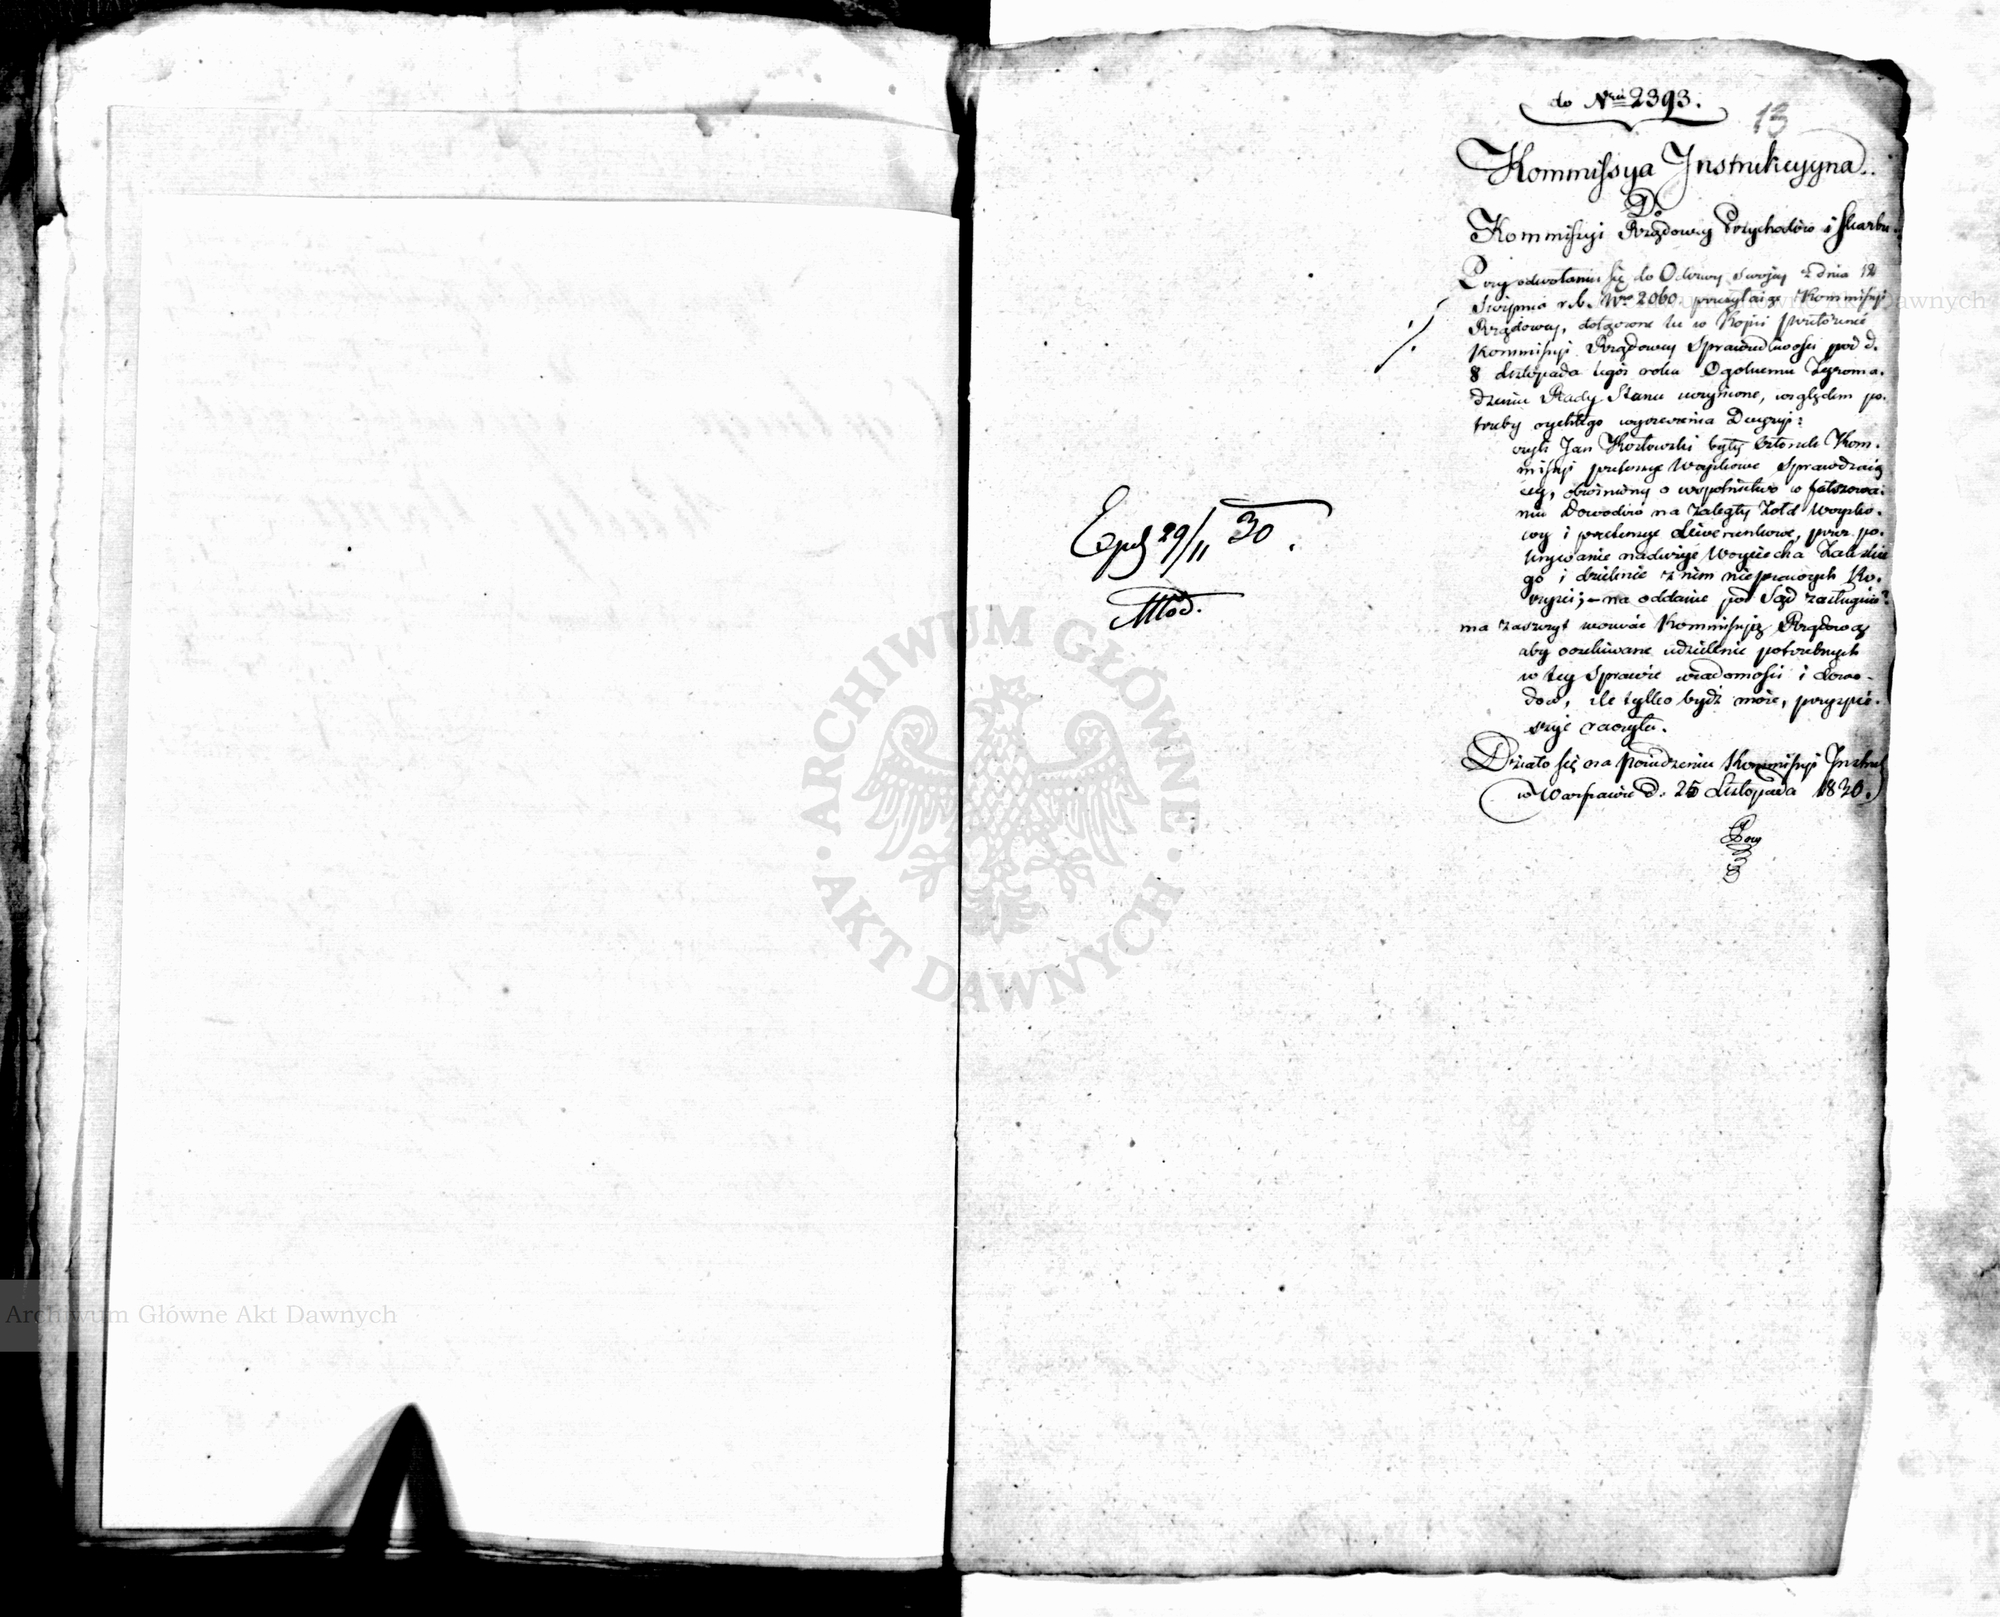 do Nru 2393.
13
Kommissya Instrukcyyna
Do
Kommissyi Rządowey Przychodów i Skarbu.
Przy odwołaniu się do Odezwy swojey z dnia 12
Sierpnia r. b. Nro 2060. przesyłaiąc Kommissyi
Rządowey, dołączone tu w Kopii powtórzenie
Kommissyi Rządowey Sprawiedliwości pod d.
8 Listopada tegoż roku Ogólnemu Zgroma-
dzeniu Rady Stanu uczynione, względem po-
trzeby rychłego wyrzeczenia Decyzyi:
czyli Jan Kozłowski były Członek Kom-
missyi pretensye Woyskowe Sprawdzaią
cey, obwiniony o wspólnictwo w fałszowa-
niu Dowodów na zaległy Żołd Woysko-
wy i pretensye Liwerunkowe, przez po-
krywanie nadużyć Woyciecha Zalewskie
go i dzielenie z nim nieprawych Ko-
rzyści; - na oddanie pod Sąd zasługuie?
ma zaszczyt wezwać Kommissyią Rządową
aby oczekiwane udzielenie potrzebnych
w tey Sprawie wiadomości i Dowo-
dów, ile tylko bydź może, przyspie-
szyć raczyła.
Działo się na Posiedzeniu Kommissyi Instruk
w Warszawie d. 25 Listopada 1830.
Exped 29/11 30.
Młod.
ARCHIWUM GŁÓWNE
AKT DAWNYCH
Archiwum Główne Akt Dawnych
Archiwum Główne Akt Dawnych